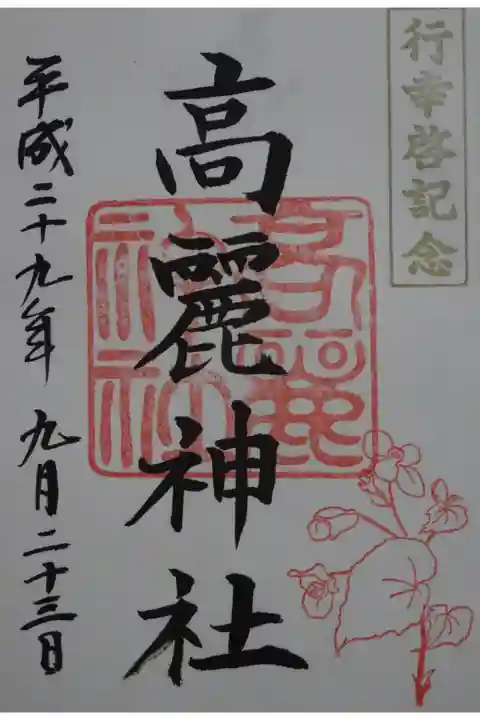 行幸啓記念
高麗神社
高麗神社
平成二十九年九月二十三日